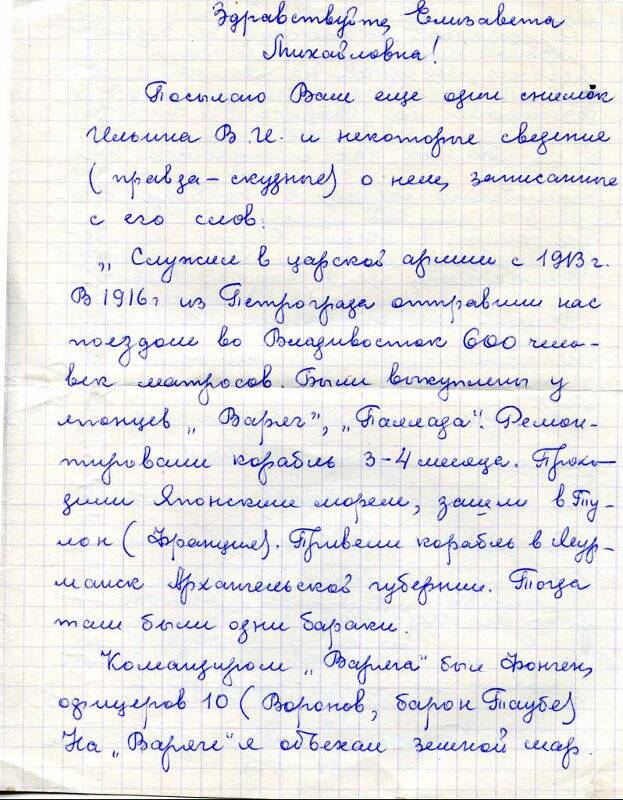 Здравствуйте, Елизавета
Михайловна!
Посылаю Вам еще один снимок
Ильина В.И. и некоторые сведение
(правда – скудные) о нем, записанные
с его слов:
„Служил в царской армии с 1913 г.
В 1916 г из Петрограда отправили нас
поездом во Владивосток 600 чело-
век матросов. Были выкуплены у
японцев „Варяг", „Паллада". Ремон-
тировали корабль 3-4 месяца. Прохо-
дили Японским морем, зашли в Ту-
лон (Франция). Привели корабль в Мур-
манск Архангельской губернии. Тогда
там были одни бараки.
Командиром „Варяга" был Фонген,
офицеров 10 (Воронов, барон Таубе)
На „Варяге" я объехал земной шар.